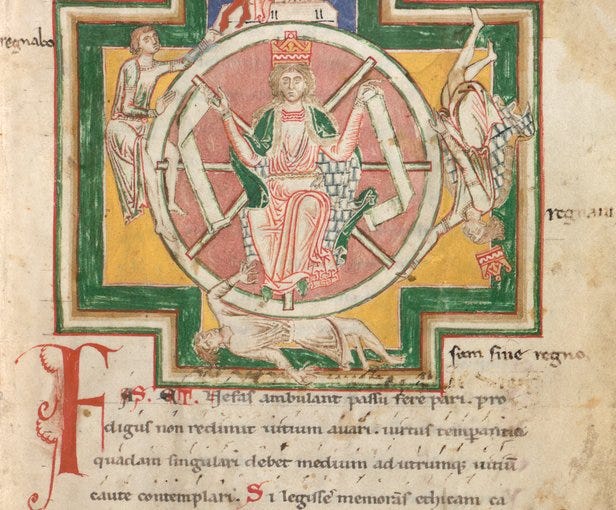 regnabo
regnaui
sum sine regno
FAS. ET. Nefas ambulant passu fere pari. pro
digus non redimit uitium auari. uirtus temperantia
quadam singulari debet medium ad utrumq; uitiū
caute contemplari. Si legisse memoras ethicam ca